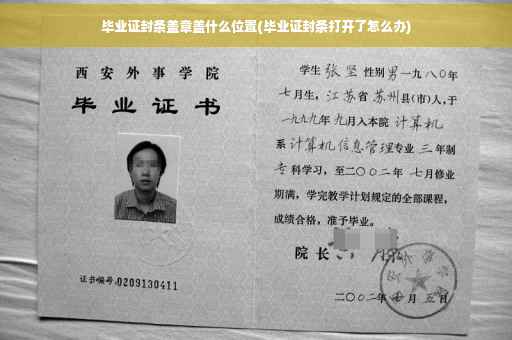 毕业证封条盖章盖什么位置(毕业证封条打开了怎么办)
西安外事学院
毕业证书
证书编号:0209130411
学生 张坚 性别 男 一九八〇年
七月生，江苏省 苏州县(市)人,于
一九九九年 九月入本院 计算机
系 计算机信息管理专业 三 年制
专 科学习，至二〇〇二年 七月修业
期满，学完教学计划规定的全部课程，
成绩合格，准予毕业。
院 长
二〇〇二年 月 五 日